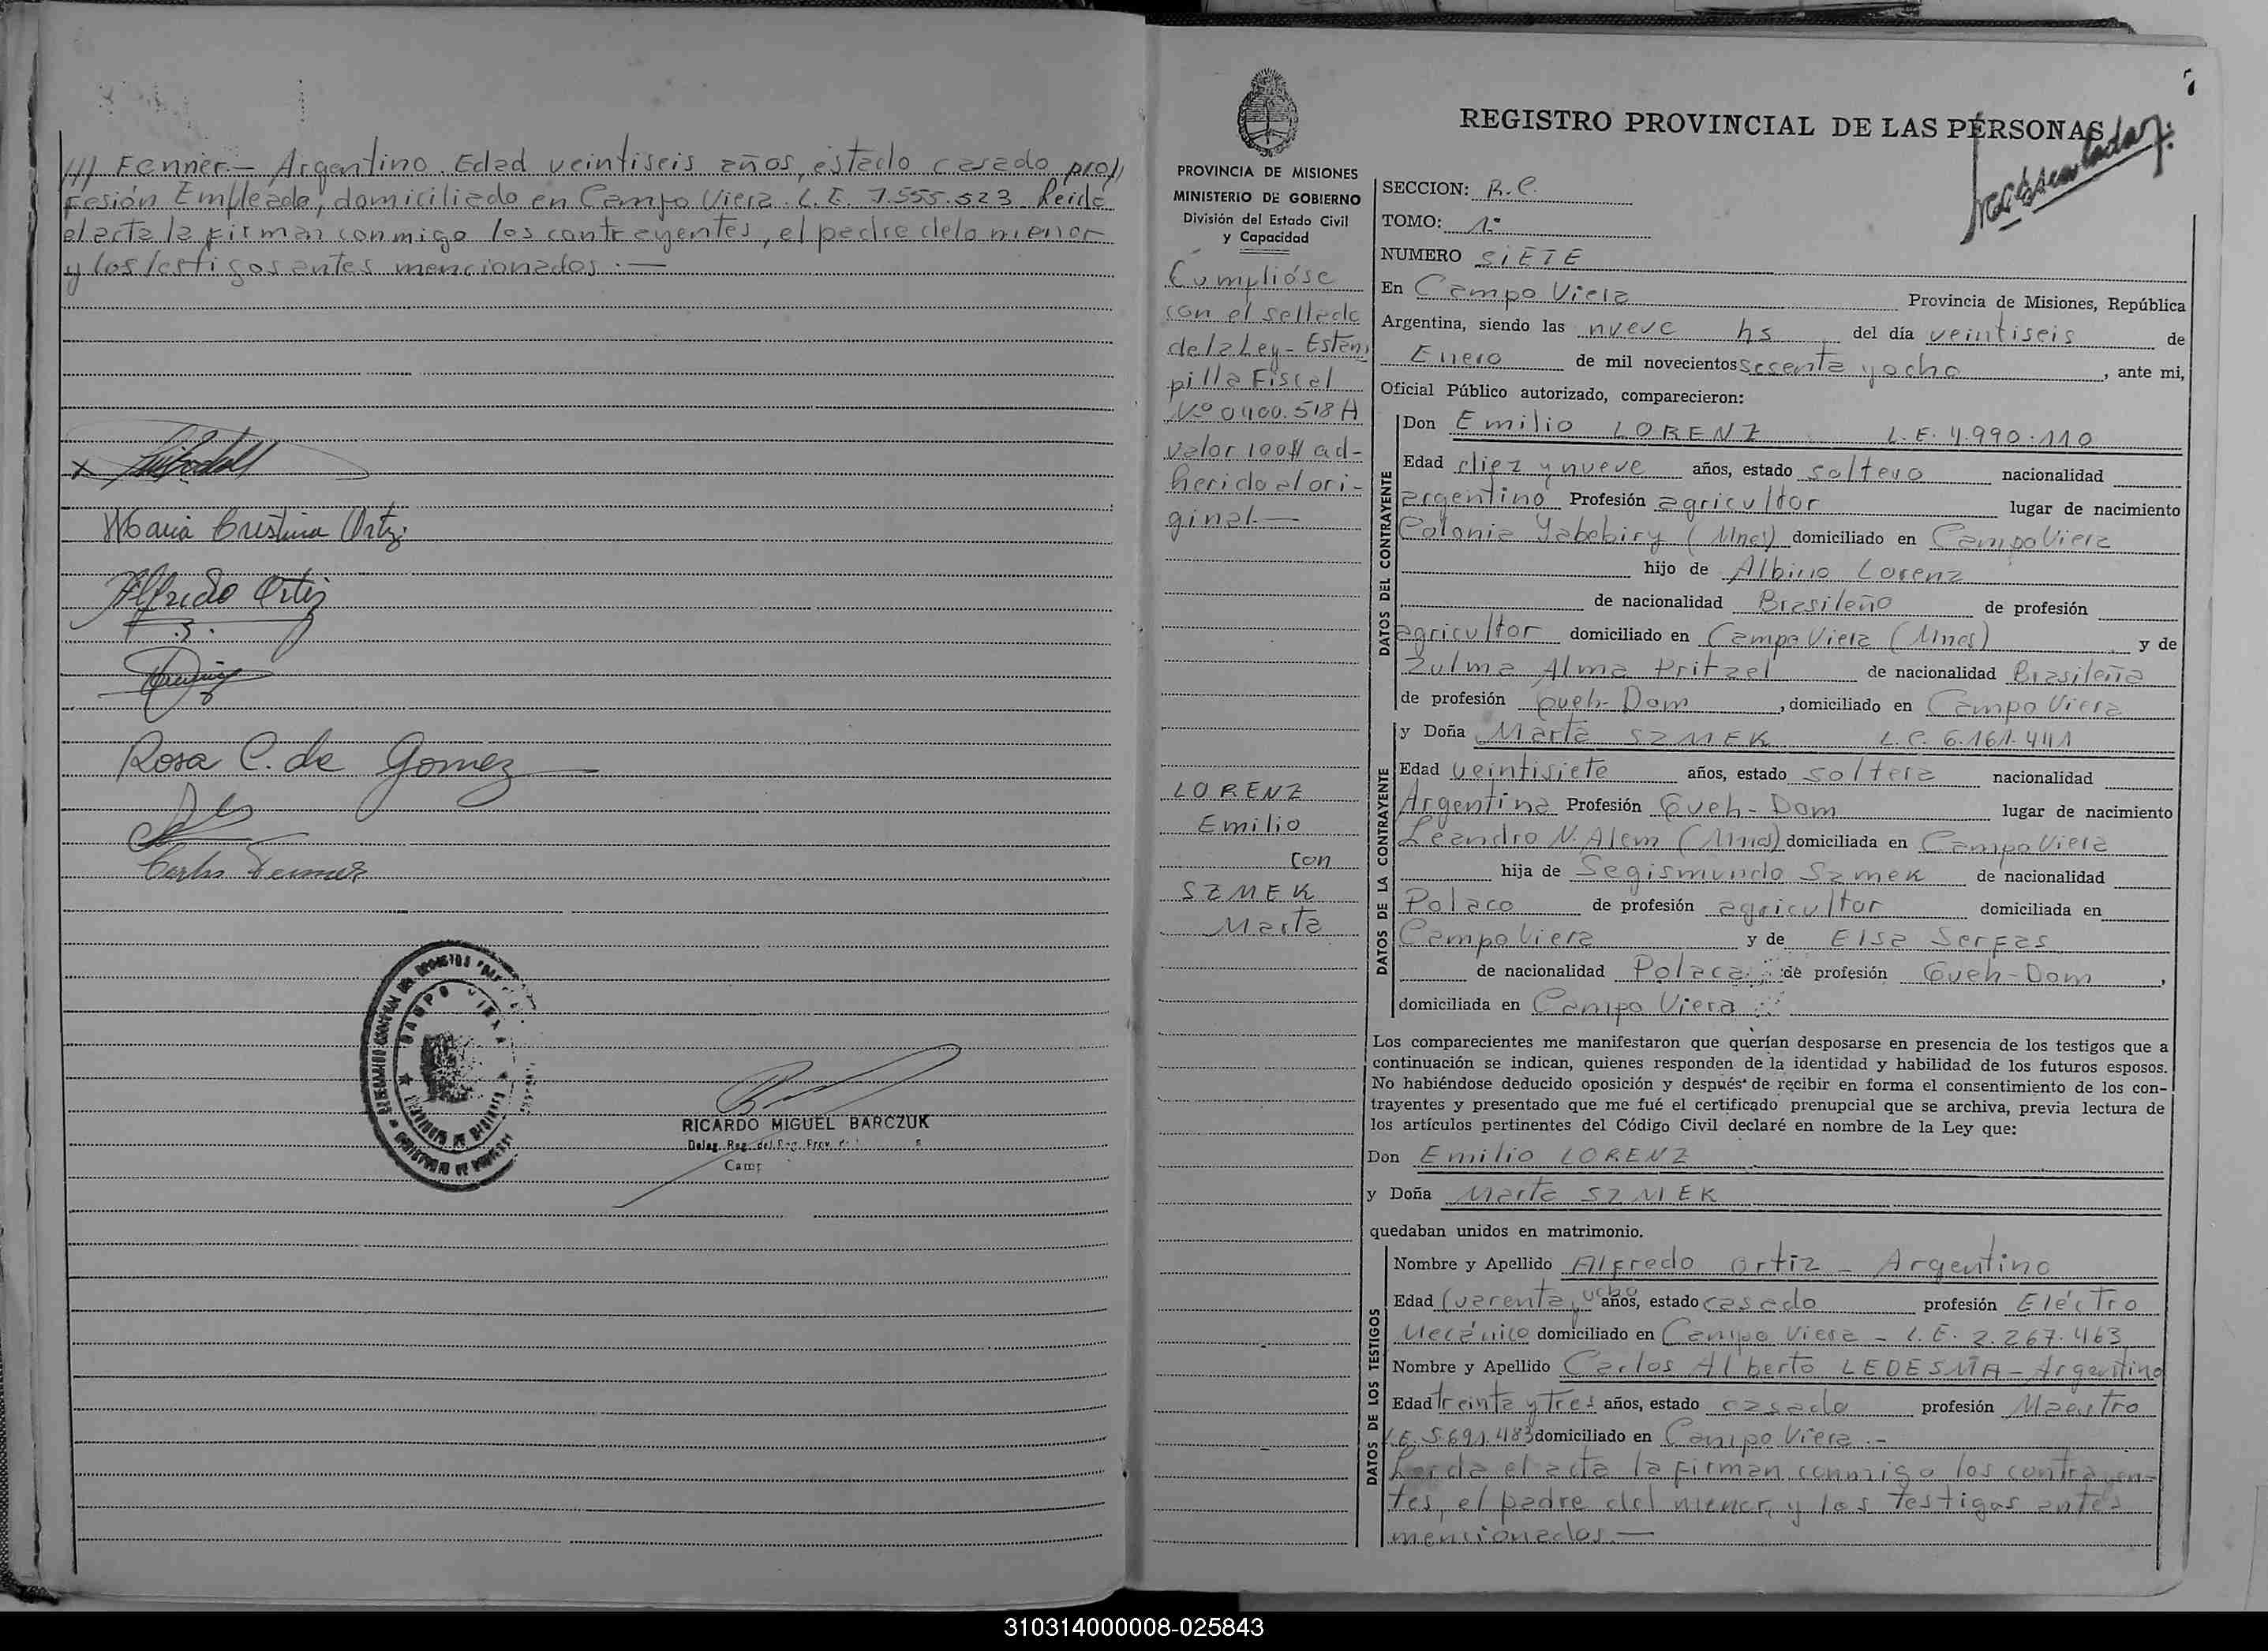 /// Fenner.- Argentino. Edad veintiseis años, estado casado prof//
fesión Empleado, domiciliado en Campo Viera. L.E. 7.555.523 Leida
el acta la firman conmigo los contrayentes, el padre de la menor
y los testigos antes mencionados.—
Maria Cristina Ortiz
Alfredo Ortiz
Rosa C. de Gomez
Carlos Fenner
CAMPO VIERA
RICARDO MIGUEL BARCZUK
Deleg. Reg. del Reg. Prov. de
Camp
7
REGISTRO PROVINCIAL DE LAS PERSONAS
PROVINCIA DE MISIONES
MINISTERIO DE GOBIERNO
División del Estado Civil
y Capacidad
Cumplióse
con el sellado
de la Ley - Estam
pilla Fiscal
Nº 0400.518 A
valor 100$ ad-
herido al ori-
ginal.—
LORENZ
Emilio
con
SZMEK
Marta
SECCION: R.C.
TOMO: 1º
NUMERO SIETE
En Campo Viera Provincia de Misiones, República
Argentina, siendo las nueve hs del día veintiseis de
Enero de mil novecientos sesenta y ocho, ante mi,
Oficial Público autorizado, comparecieron:
DATOS DEL CONTRAYENTE
Don Emilio LORENZ L.E. 4.990.110
Edad diez y nueve años, estado soltero nacionalidad
argentino Profesión agricultor lugar de nacimiento
Colonia Yabebiry (Mnes) domiciliado en Campo Viera
hijo de Albino Lorenz
de nacionalidad Brasileño de profesión
agricultor domiciliado en Campo Viera (Mnes) y de
Zulma Alma Pritzel de nacionalidad Brasileña
de profesión Queh-Dom, domiciliado en Campo Viera
y Doña Marta SZMEK L.C. 6.161.441
DATOS DE LA CONTRAYENTE
Edad veintisiete años, estado soltera nacionalidad
Argentina Profesión Queh-Dom lugar de nacimiento
Leandro N. Alem (Mnes) domiciliada en Campo Viera
hija de Segismundo Szmek de nacionalidad
Polaco de profesión agricultor domiciliada en
Campo Viera y de Elsa Serfas
de nacionalidad Polaca de profesión Queh-Dom,
domiciliada en Campo Viera
Los comparecientes me manifestaron que querían desposarse en presencia de los testigos que a
continuación se indican, quienes responden de la identidad y habilidad de los futuros esposos.
No habiéndose deducido oposición y después de recibir en forma el consentimiento de los con-
trayentes y presentado que me fué el certificado prenupcial que se archiva, previa lectura de
los artículos pertinentes del Código Civil declaré en nombre de la Ley que:
Don Emilio LORENZ
y Doña Marta SZMEK
quedaban unidos en matrimonio.
DATOS DE LOS TESTIGOS
Nombre y Apellido Alfredo Ortiz - Argentino
Edad Cuarenta y ocho años, estado casado profesión Eléctro
Mecánico domiciliado en Campo Viera - L.E. 2.267.463
Nombre y Apellido Carlos Alberto LEDESMA - Argentino
Edad treinta y tres años, estado casado profesión Maestro
L.E. 5.691.483 domiciliado en Campo Viera.-
Leida el acta la firman conmigo los contrayen-
tes, el padre del menor, y los testigos antes
mencionados.—
310314000008-025843